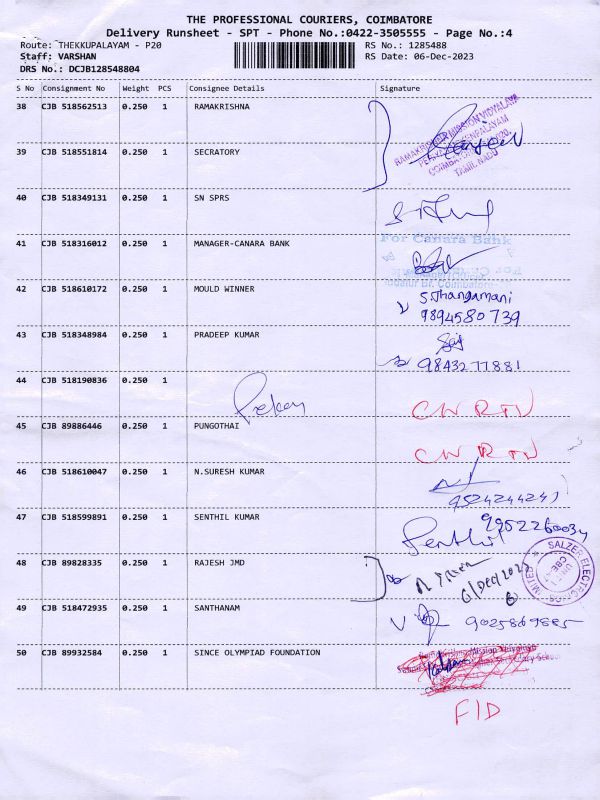 THE PROFESSIONAL COURIERS, COIMBATORE
Delivery Runsheet - SPT - Phone No.:0422-3505555 - Page No.:4
Route: THEKKUPALAYAM - P20
RS No.: 1285488
Staff: VARSHAN
RS Date: 06-Dec-2023
DRS No.: DCJB128548804
S No Consignment No Weight PCS Consignee Details Signature
38 CJB 518562513 0.250 1 RAMAKRISHNA
RAMAKRISHNA MISSION VIDYALAYA
COIMBATORE
TAMIL NADU
39 CJB 518551814 0.250 1 SECRATORY
40 CJB 518349131 0.250 1 SN SPRS
41 CJB 518316012 0.250 1 MANAGER-CANARA BANK
For Canara Bank
42 CJB 518610172 0.250 1 MOULD WINNER
S.Thangamani
9894580739
43 CJB 518348984 0.250 1 PRADEEP KUMAR
9843277881
44 CJB 518190836 0.250 1
CN RTN
45 CJB 89886446 0.250 1 PUNGOTHAI
CN RTN
46 CJB 518610047 0.250 1 N.SURESH KUMAR
9524244241
47 CJB 518599891 0.250 1 SENTHIL KUMAR
Senthil
48 CJB 89828335 0.250 1 RAJESH JMD
6/Dec/2023
SALZER ELECTRONICS LIMITED
49 CJB 518472935 0.250 1 SANTHANAM
9025869885
50 CJB 89932584 0.250 1 SINCE OLYMPIAD FOUNDATION
F/D